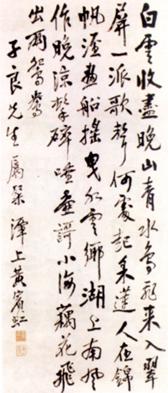 白雲收盡晚山青水鳥飛來入翠
屏一派歌聲何處起采蓮人在錦
帆涇畫船搖曳水雲鄉湖上南風
作晚涼擊碎唾壺謌小海藕花飛
出兩鴛鴦
子良先生屬粲潭上黃賓虹